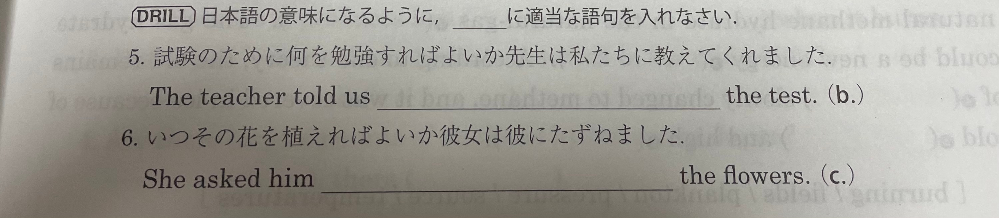 DRILL 日本語の意味になるように, ______ に適当な語句を入れなさい.
5. 試験のために何を勉強すればよいか先生は私たちに教えてくれました.
The teacher told us ______ the test. (b.)
6. いつその花を植えればよいか彼女は彼にたずねました.
She asked him ______ the flowers. (c.)